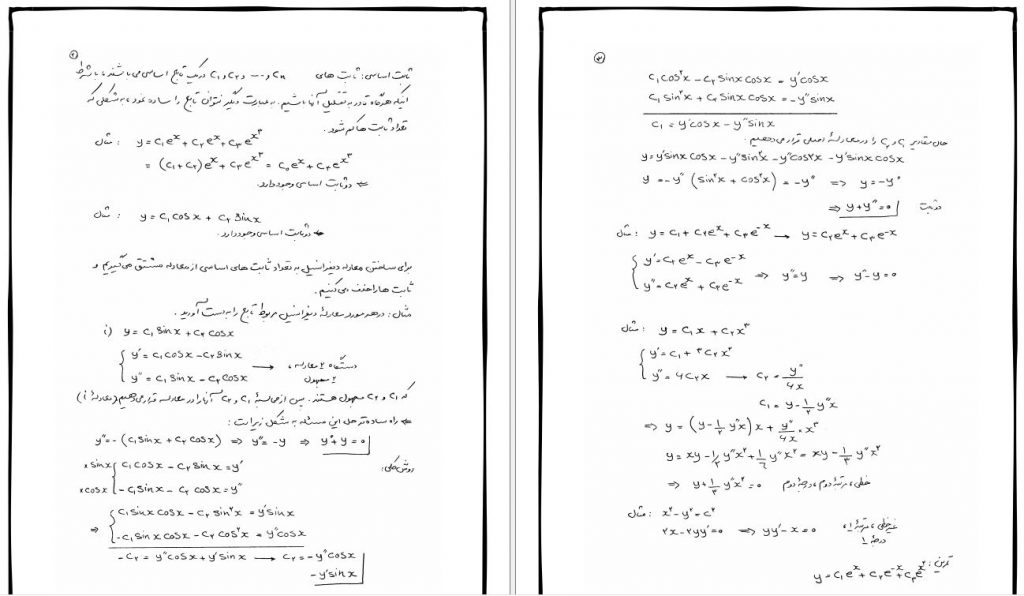 ②
ثابت اساسی: ثابت های C₁ و C₂ و ... و Cₙ در یک تابع اساسی می باشند، با شرط
اینکه هرگاه قادر به تقلیل آنها نباشیم. به عبارت دیگر نتوان تابع را ساده نمود، به شکلی که
تعداد ثابت ها کم شود.
مثال: y = c₁eˣ + c₂eˣ + c₃e^x^۳
= (c₁+c₂)eˣ + c₃e^x^۳ = c₀eˣ + c₃e^x^۳
⇐ دو ثابت اساسی وجود دارد.
مثال: y = c₁cosx + c₂ sinx
دو ثابت اساسی وجود دارد.
برای ساختن معادله دیفرانسیل به تعداد ثابت های اساسی از معادله مشتق می گیریم و
ثابت ها را حذف می کنیم.
مثال: در هر مورد معادلۀ دیفرانسیل مربوط تابع را به دست آورید.
i) y = c₁ sinx + c₂ cosx
y' = c₁cosx - c₂sinx
y'' = c₁sinx - c₂cosx → دستگاه ۲ معادله، ۲ مجهول
که c₁ و c₂ مجهول هستند. پس از محاسبۀ c₁ و c₂ آنها را در معادله قرار می دهیم (معادلۀ i)
⇐ راه ساده تر حل این مسئله به شکل زیر است:
y'' = -(c₁sinx + c₂cosx) ⇒ y'' = -y ⇒ y'' + y = 0
روش کلی:
×sinx { c₁cosx - c₂sinx = y'
×cosx { -c₁sinx - c₂cosx = y''
⇒ { c₁sinx cosx - c₂sin²x = y'sinx
-c₁sinx cosx - c₂cos²x = y''cosx
-c₂ = y''cosx + y'sinx → c₂ = -y''cosx
- y'sinx
③
c₁cos²x - c₂sinx cosx = y'cosx
c₁sin²x + c₂sinx cosx = -y''sinx
c₁ = y'cosx - y''sinx
حال مقادیر c₁ و c₂ را در معادلۀ اصلی قرار می دهیم:
y = y'sinx cosx - y''sin²x - y''cos²x - y'sinx cosx
y = -y''(sin²x + cos²x) = -y'' ⇒ y = -y''
⇒ y + y'' = 0
مثال: y = c₁ + c₂eˣ + c₃e⁻ˣ → y = c₂eˣ + c₃e⁻ˣ
{ y' = c₂eˣ - c₃e⁻ˣ
y'' = c₂eˣ + c₃e⁻ˣ ⇒ y'' = y ⇒ y'' - y = 0
مثال: y = c₁x + c₂x³
{ y' = c₁ + ۳c₂x²
y'' = ۶c₂x → c₂ = y''/۶x
c₁ = y - ½y''x
⇒ y = (y - ½y''x)x + y''/۶x · x³
y = xy - ½y''x² + ⅙y''x² = xy - ⅓y''x²
⇒ y + ⅓y''x² = 0 خطی، مرتبۀ دوم، درجۀ دوم
مثال: x² - y² = c²
۲x - ۲yy' = 0 ⇒ yy' - x = 0 غیرخطی، مرتبۀ ۱،
درجۀ ۱
تمرین:
y = c₁eˣ + c₂e⁻ˣ + c₃e^x^۲